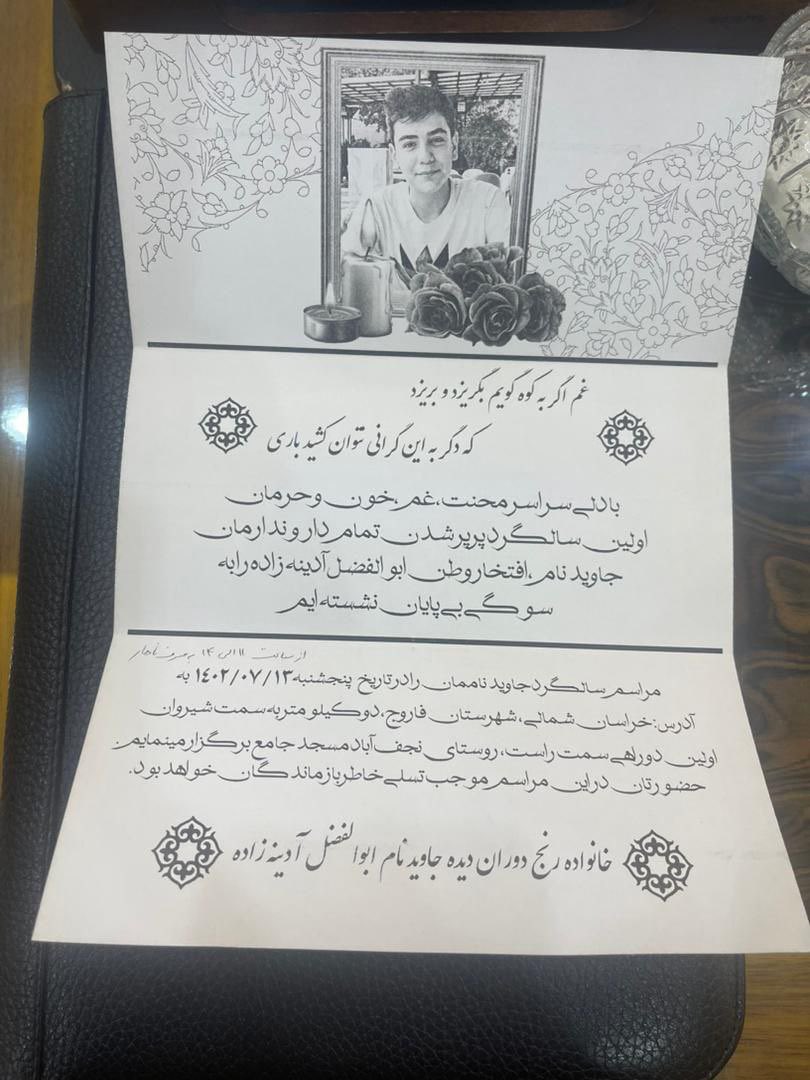 غم اگر به کوه گویم بگریزد و بریزد
که دگر به این گرانی نتوان کشید باری
با دلی سراسر محنت، غم، خون و حرمان
اولین سالگرد پرپر شدن تمام دار و ندارمان
جاوید نام، افتخار وطن ابوالفضل آدینه زاده را به
سوگی بی پایان نشسته ایم
از ساعت ۱۱ الی ۱۴ به صرف ناهار
مراسم سالگرد جاوید ناممان را در تاریخ پنجشنبه ۱۴۰۲/۰۷/۱۳ به
آدرس: خراسان شمالی، شهرستان فاروج، دو کیلومتر به سمت شیروان
اولین دوراهی سمت راست، روستای نجف آباد مسجد جامع برگزار مینمایم.
حضورتان در این مراسم موجب تسلی خاطر بازماندگان خواهد بود.
خانواده رنج دوران دیده جاوید نام ابوالفضل آدینه زاده